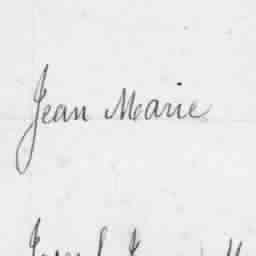 Jean Marie